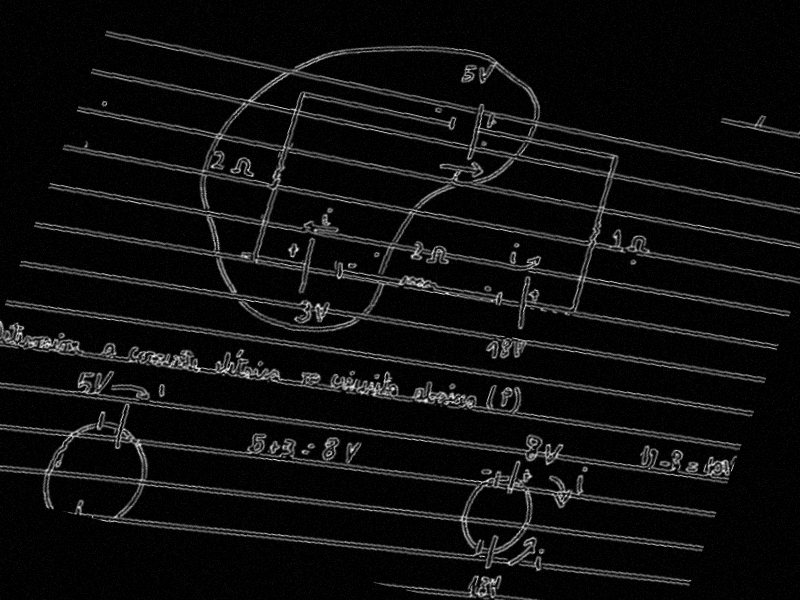 5V
- +
2 Ω
i
i
+ -
2 Ω
i
1 Ω
- +
3V
18V
Determine a corrente elétrica no circuito abaixo (i)
5V i
5+3 = 8V
8V
- +
i
i
18V